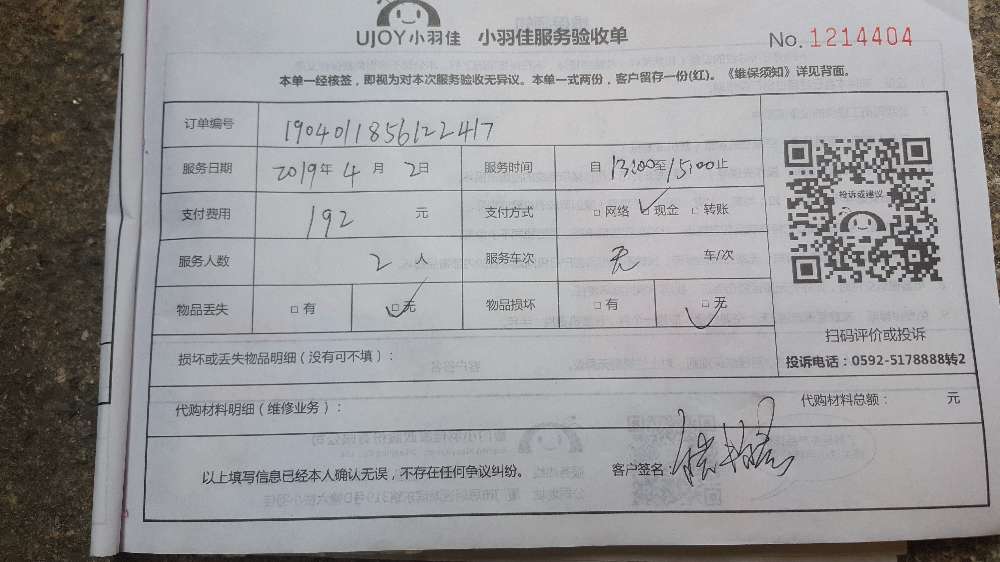 UJOY小羽佳 小羽佳服务验收单 No. 1214404
本单一经核签，即视为对本次服务验收无异议。本单一式两份，客户留存一份(红)。《维保须知》详见背面。
订单编号 190401185612247
服务日期 2019年 4 月 2日 服务时间 自 13:00至15:00止
支付费用 192 元 支付方式 □ 网络 □ 现金 □ 转账
投诉或建议
服务人数 2 人 服务车次 无 车/次
物品丢失 □ 有 □ 无 物品损坏 □ 有 □ 无
扫码评价或投诉
损坏或丢失物品明细（没有可不填）： 投诉电话：0592-5178888转2
代购材料明细（维修业务）： 代购材料总额： 元
以上填写信息已经本人确认无误，不存在任何争议纠纷。 客户签名：